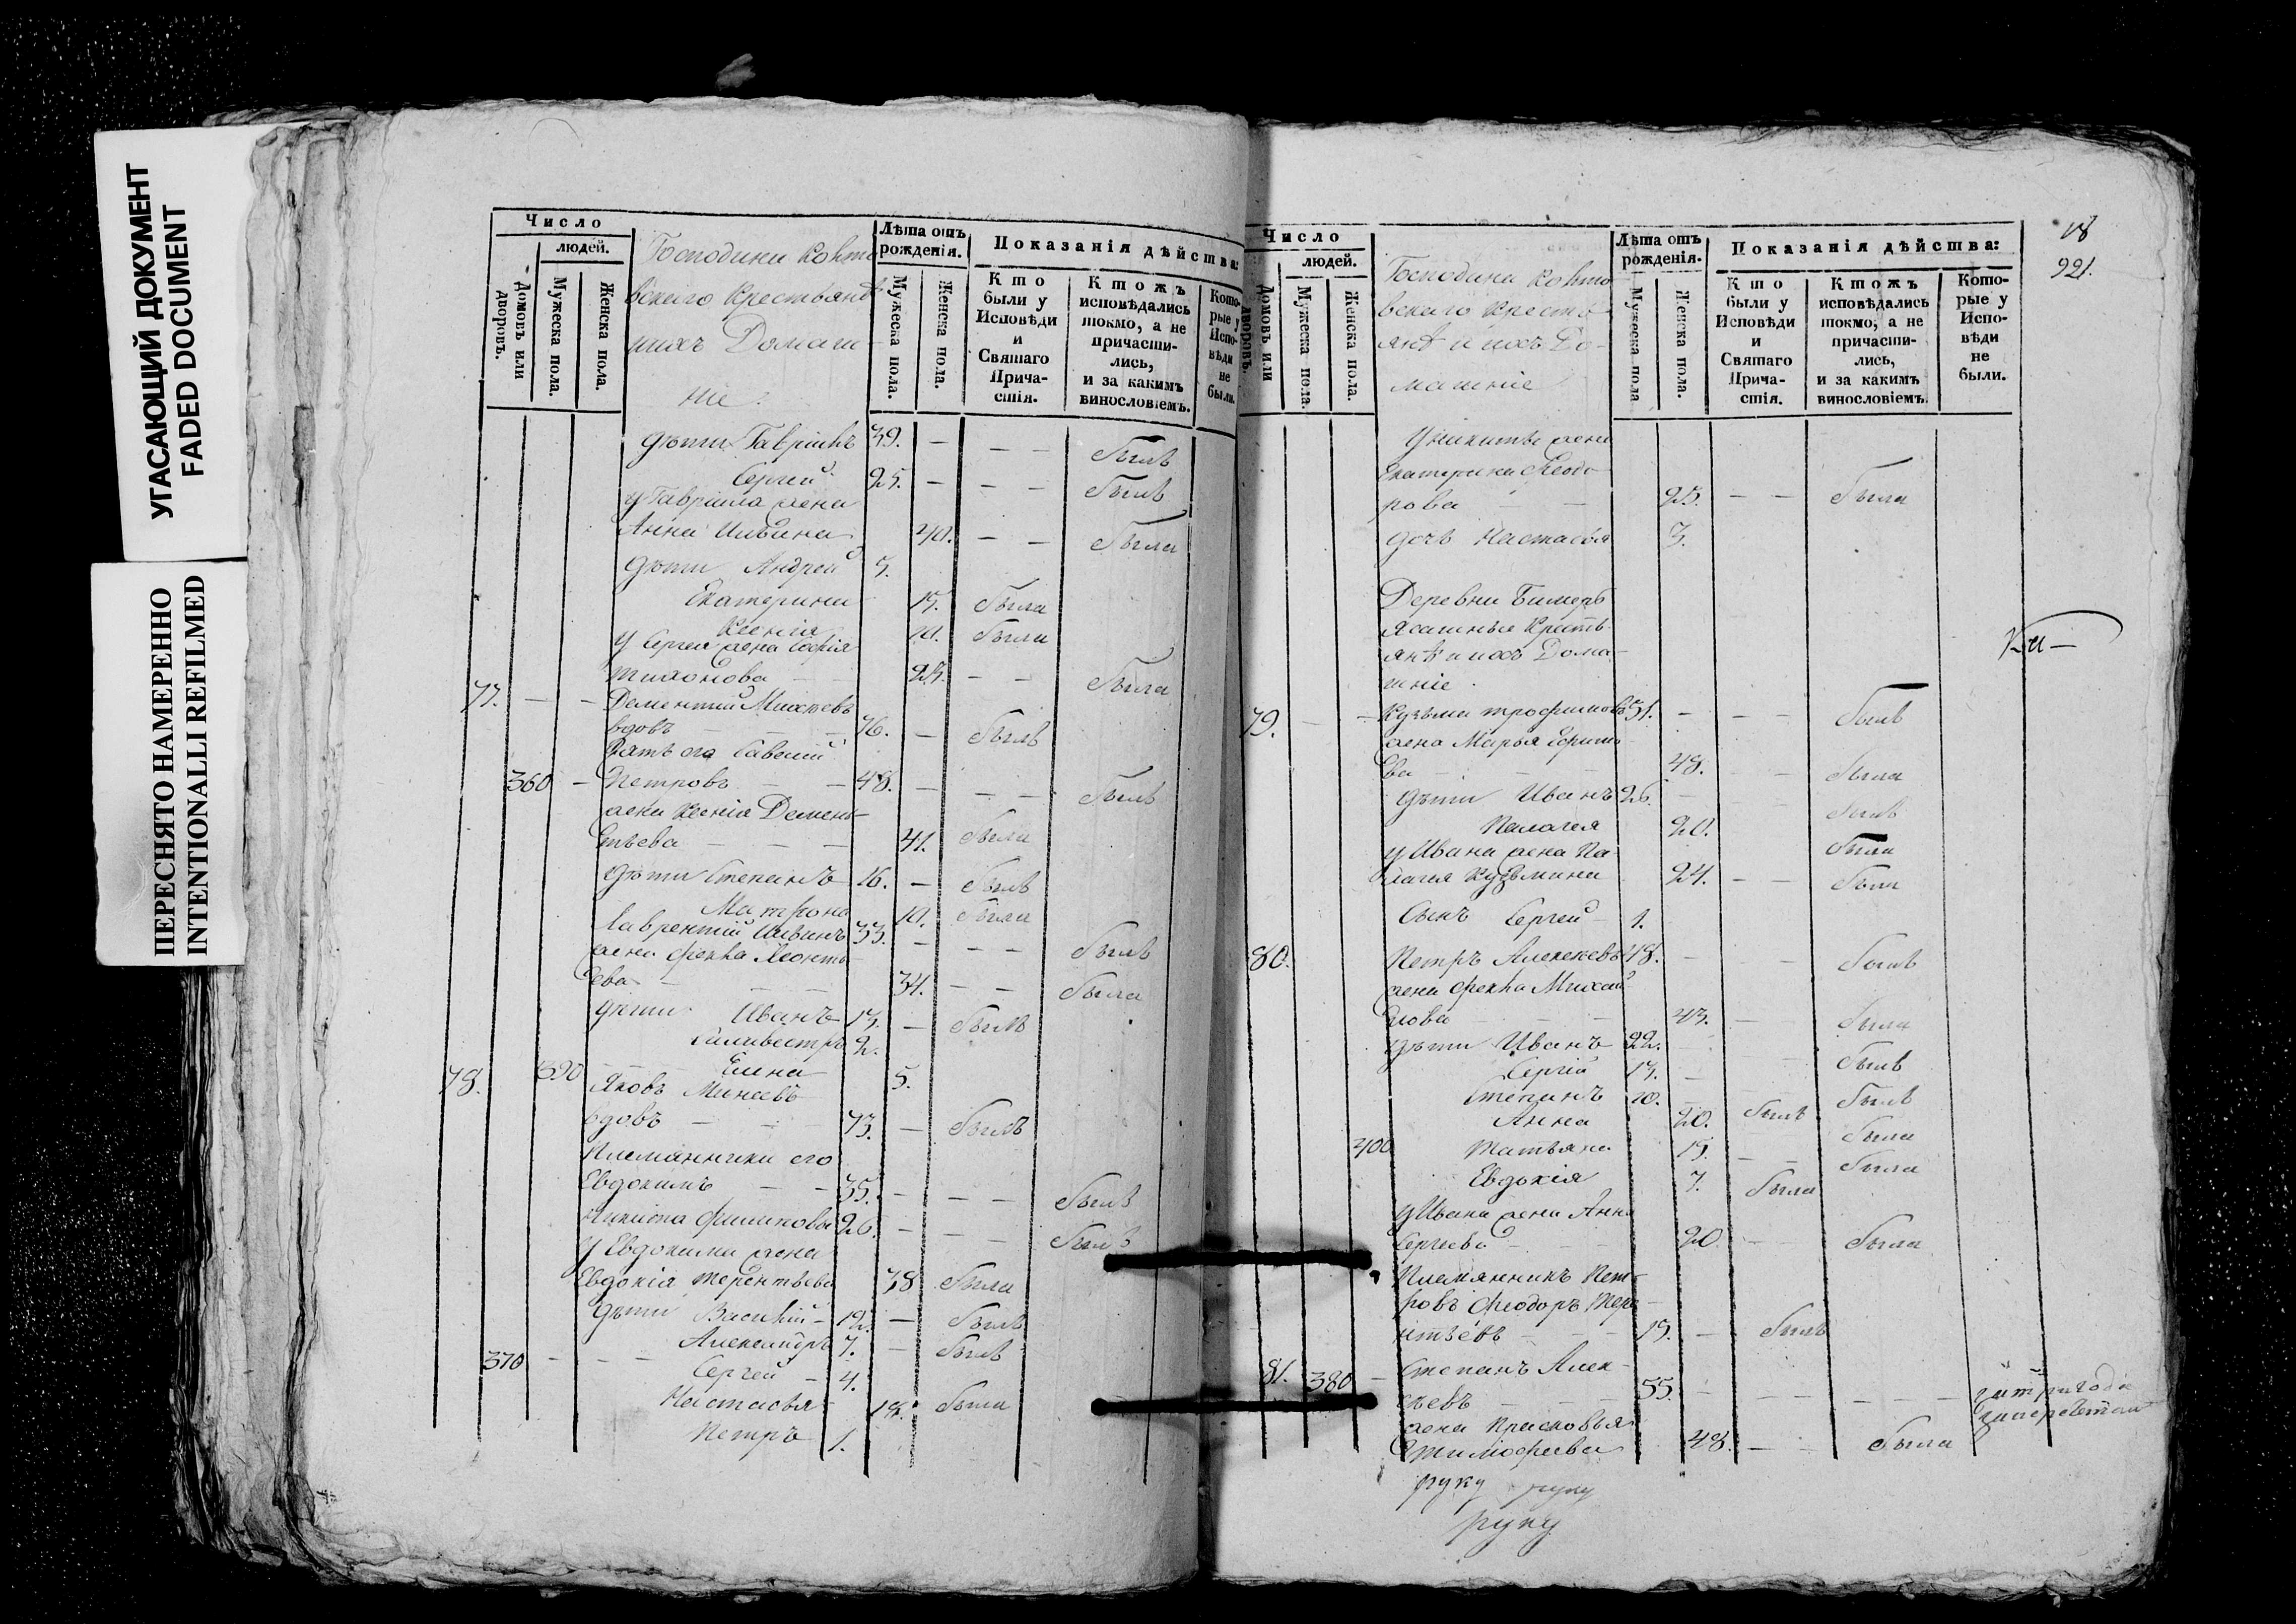 УГАСАЮЩИЙ ДОКУМЕНТ
FADED DOCUMENT
ПЕРЕСНЯТО НАМЕРЕННО
INTENTIONALLI REFILMED
Число
людей.
Домовъ или дворовъ.
Мужеска пола.
Женска пола.
Лѣта отъ рожденія.
Мужеска пола.
Женска пола.
Показанія дѣйства:
Кто были у Исповѣди и Святаго Причастія.
Ктожъ исповѣдались токмо, а не причастились, и за какимъ винословіемъ.
Которые у Исповѣди не были.
дѣти Гаврiилъ 39. — — — былъ
Сергей 25. — — — былъ
у Гаврiила жена
Анна 40. — — была
дѣти Андрей 5.
Екатерина 15. была
Ксенія 10. была
у Сергея жена Софiя
Тихонова 25. — — была
77. — — Дементий Михѣевъ
вдовъ — — 76. — былъ
Зять его Савелий
360 — Петровъ — 48. — — — былъ
жена Ксенія Демен
тьева — — — 41. была
дѣти Степанъ 16. — былъ
Матрона 10. была
Лаврентий 33. — — — былъ
жена Фекла Леонть
ева — — — 34. — — была
дѣти Иванъ 13. — былъ
Силивестръ 2.
Елена 5.
78. 390 Яковъ Минеевъ
вдовъ — — 73. — былъ
Племянники его
Евдокимъ — — 35. — — — былъ
Никита Филиповы 26. — — — былъ
у Евдокима жена
Евдокія Терентьева 38 была
дѣти Василий — 12. — былъ
Александръ 7. — былъ
370 — — — Сергей — 4.
Настасья — 18. была
Петръ 1.
18
991.
Число
людей.
Домовъ или дворовъ.
Мужеска пола.
Женска пола.
Господина
машніе
Лѣта отъ рожденія.
Мужеска пола
Женска пола.
Показанія дѣйства:
Кто были у Исповѣди и Святаго Причастія.
Ктожъ исповѣдались токмо, а не причастились, и за какимъ винословіемъ.
Которые у Исповѣди не были.
У Никиты жена
Екатерина Феодо
рова — — 25. — — была
дочь Настасья 3.
Деревни
Ясашные Кресть
янѣ и ихъ Дома
шніе.
79. — — Кузьма Трофимовъ 51. — — — былъ
жена Марья Ефимо
ва — — — 48. — — была
дѣти Иванъ 26. — былъ
Палагея 20. была
у Ивана жена Па
лагея Кузьмина 24. — — была
Сынъ Сергей 1.
80. Петръ Алексѣевъ 48. — — былъ
жена Фекла Михай
лова — — — 43. — была
дѣти Иванъ 22. — — былъ
Сергiй 13. — былъ
Степанъ 10. — былъ
Анна 20. была
400 Татьяна 15. — — была
Евдокія 7. была
у Ивана жена Анна
Сергѣева — — 20 — была
Племянникъ Пет
ровъ Феодоръ Тере
нтьевъ — — — 15. — былъ
81. 380 — Степанъ Алек
сѣевъ — — — 55. — — — —
жена Прасковья
Тимофеева 48. — — была
руку руку
руку